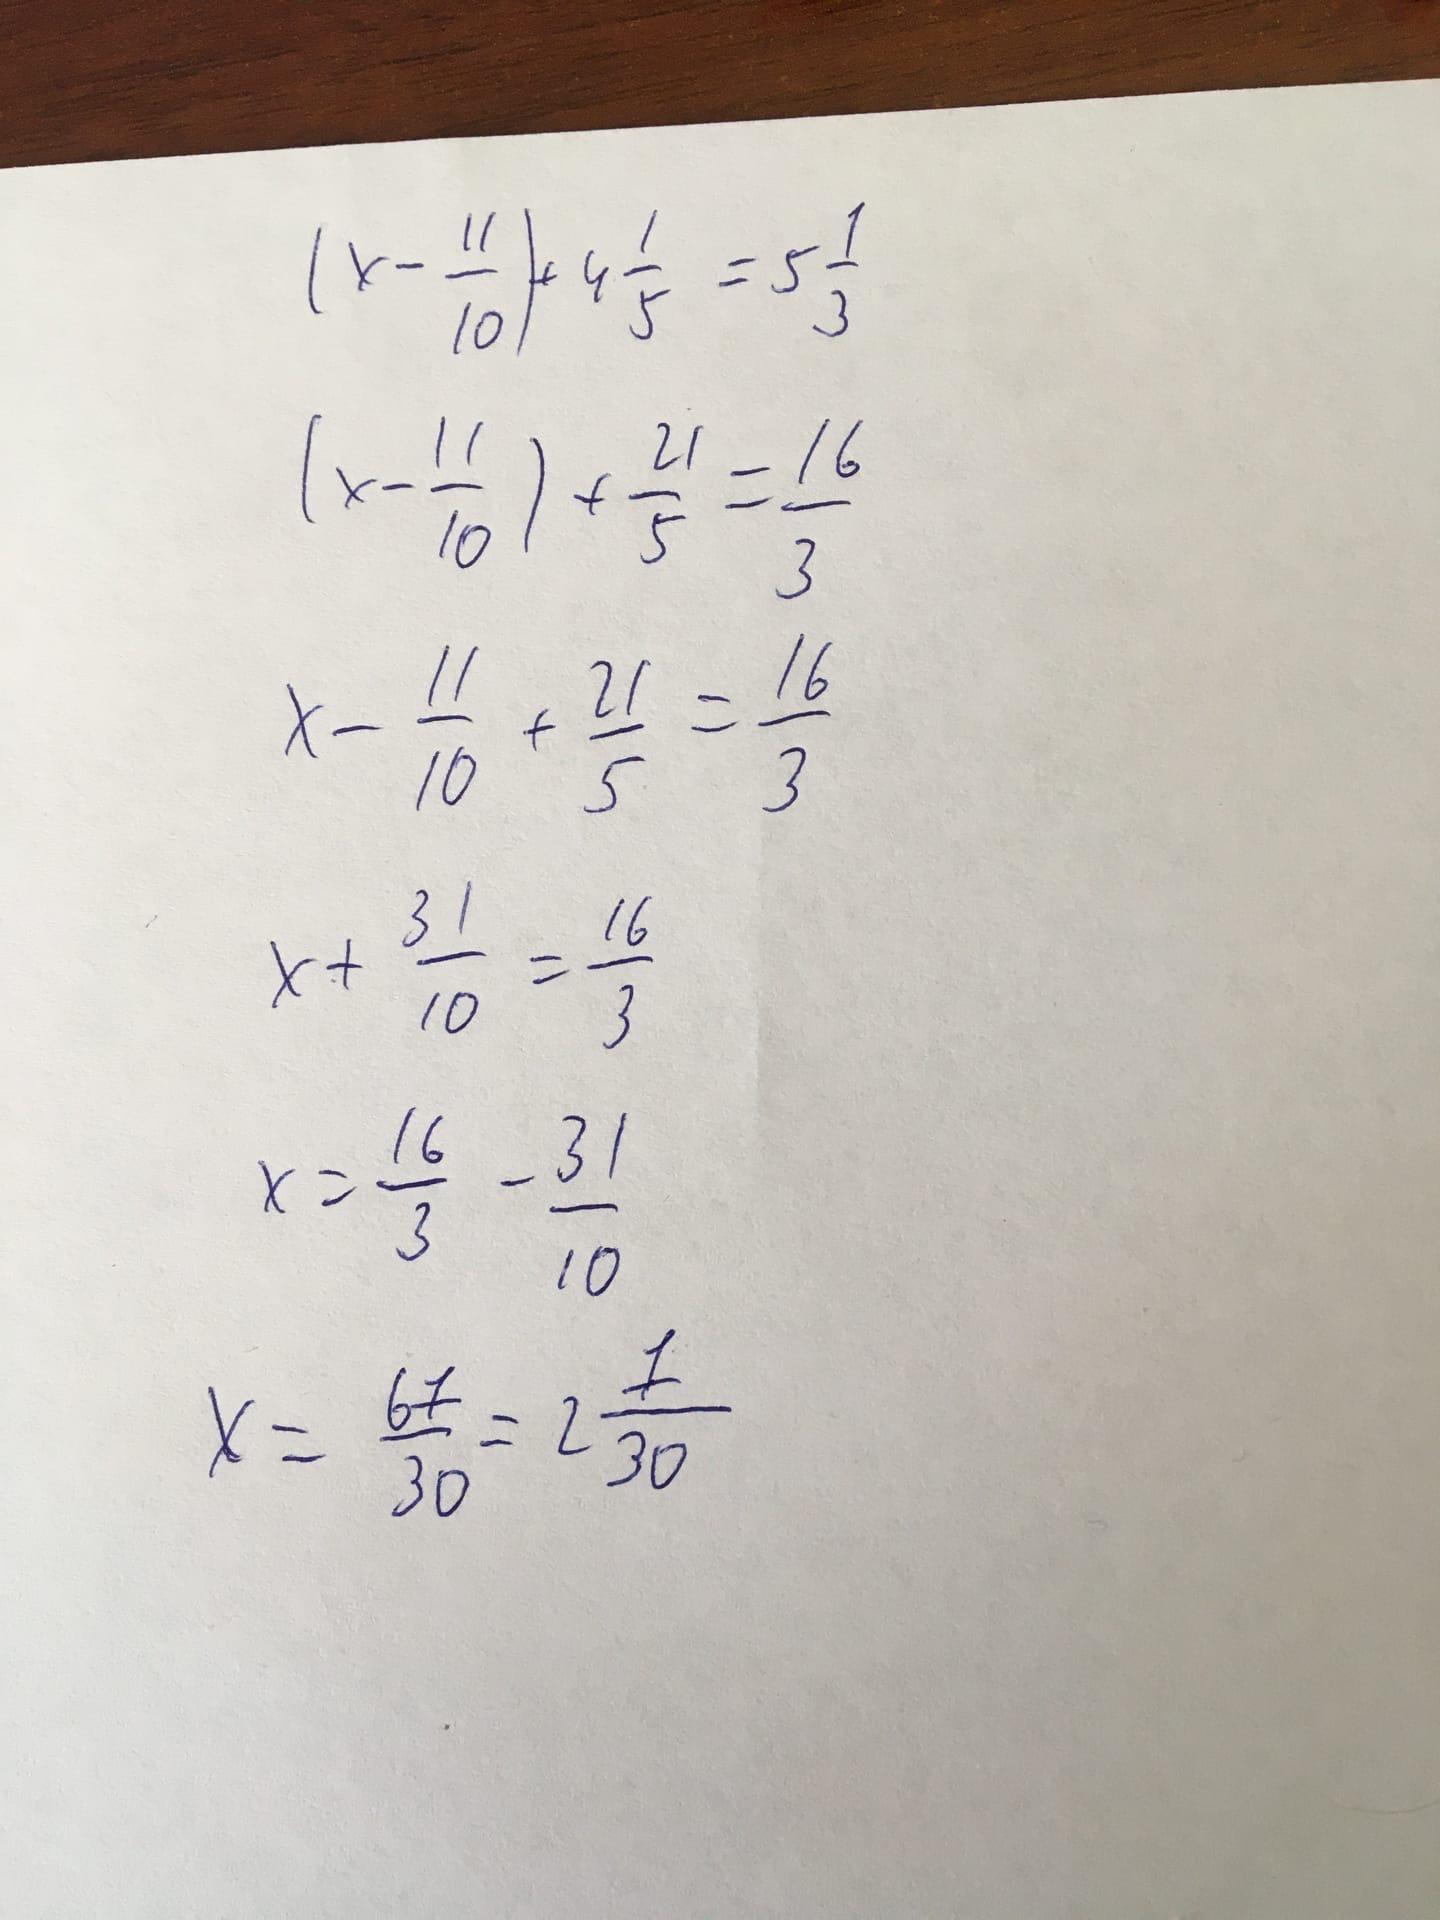 (x - 11/10) + 4 1/5 = 5 1/3
(x - 11/10) + 21/5 = 16/3
x - 11/10 + 21/5 = 16/3
x + 31/10 = 16/3
x = 16/3 - 31/10
x = 67/30 = 2 7/30